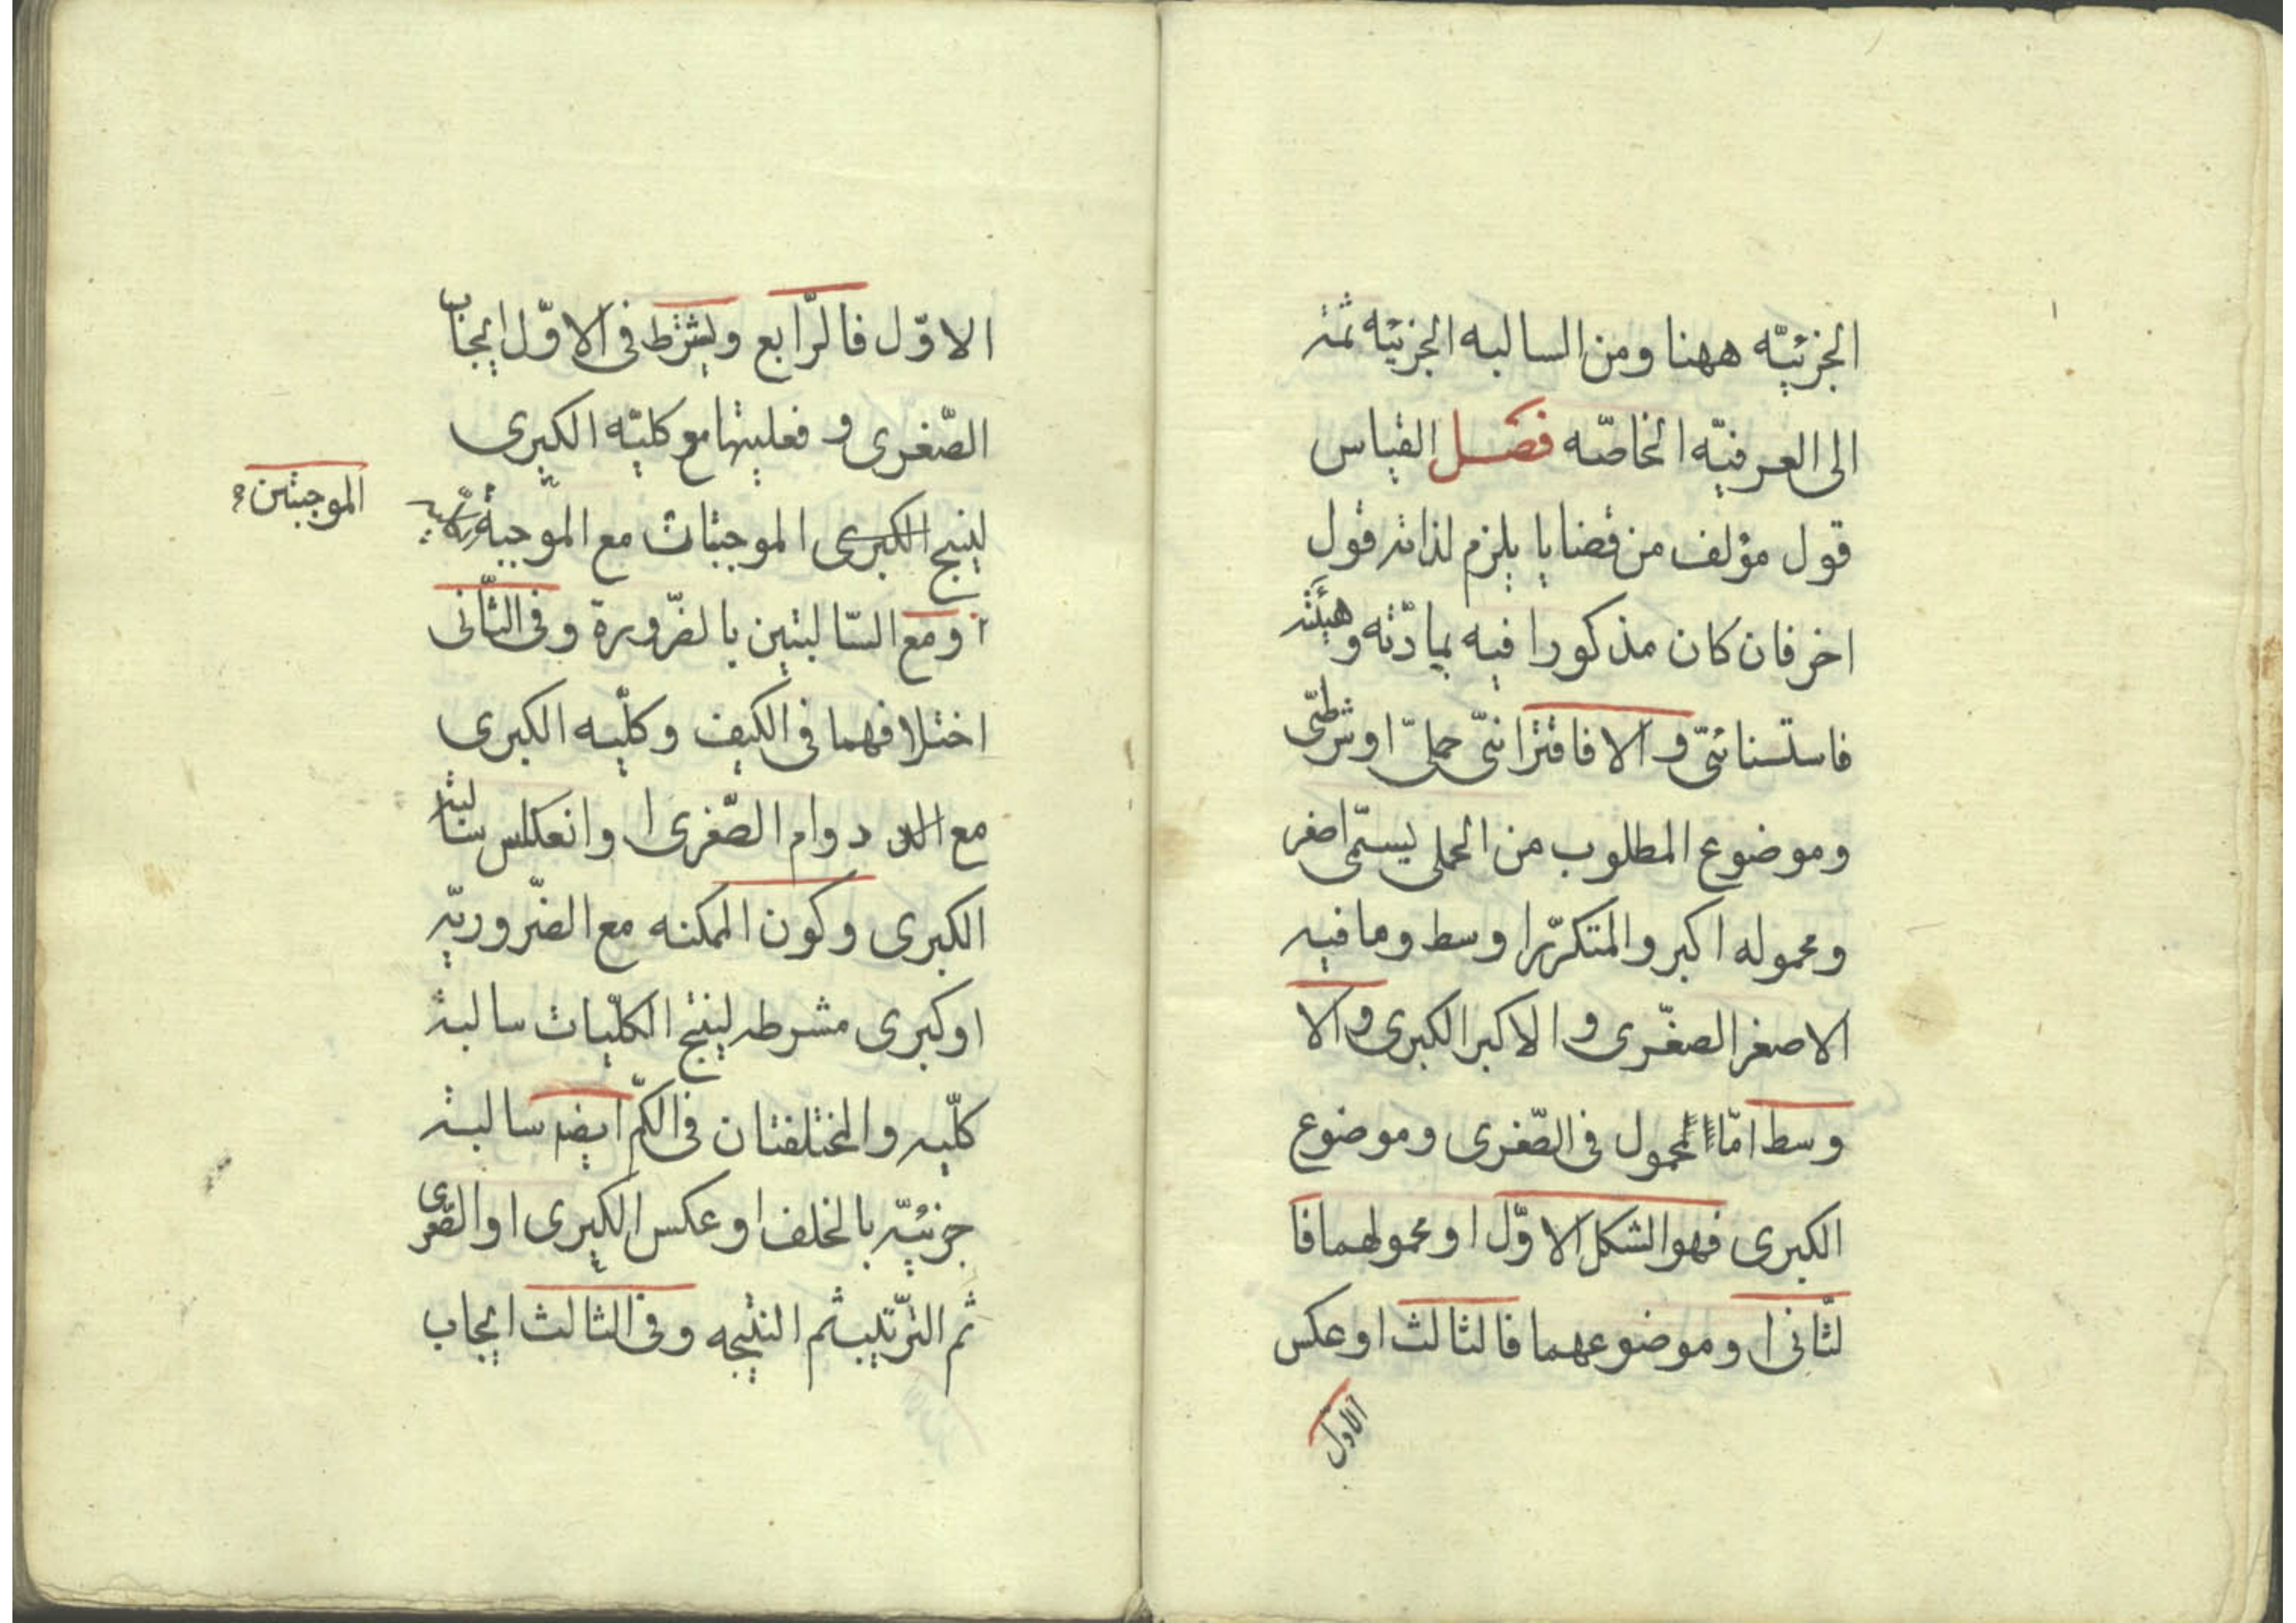 الجزئيّه ههنا ومن السالبه الجزئيه ثمّه
الى العرفيّه الخاصّه فصل القياس
قول مؤلف من قضايا يلزم لذاته قول
اخر فان كان مذكورا فيه بمادّته وهيئته
فاستسنائىّ والا فاقترانىّ حملىّ اوشرطىّ
وموضوع المطلوب من الحملى يسمّى اصغر
ومحموله اكبر والمتكرّر اوسط وما فيه
الاصغر الصغّرى والاكبر الكبرى والا
وسط امّا المحمول فى الصّغرى وموضوع
الكبرى فهو الشكل الاوّل او محمولهما فا
لثّانى او موضوعهما فالثالث او عكس
الاوّل
الاوّل فالرّابع ويشترط فى الاوّل ايجاب
الصّغرى و فعليتها مع كليّه الكبرى
لينتج الكبرى الموجبتات مع الموجبة
ا ومع السّالبتين بالضّرورة وفى الثّانى
الموجبتين
اختلافهما فى الكيف وكلّيه الكبرى
مع الد دوام الصّغرى او انعكلس سالبته
الكبرى وكون الممكنه مع الضّروريّه
اوكبرى مشرطه لينتج الكلّيات سالبة
كلّيه والمختلفتان فى الكمّ ايضا سالبة
جزئيّه بالخلف او عكس الكبرى او الصّغرى
ثم التّرتيب ثم النتيجه وفى الثالث ايجاب